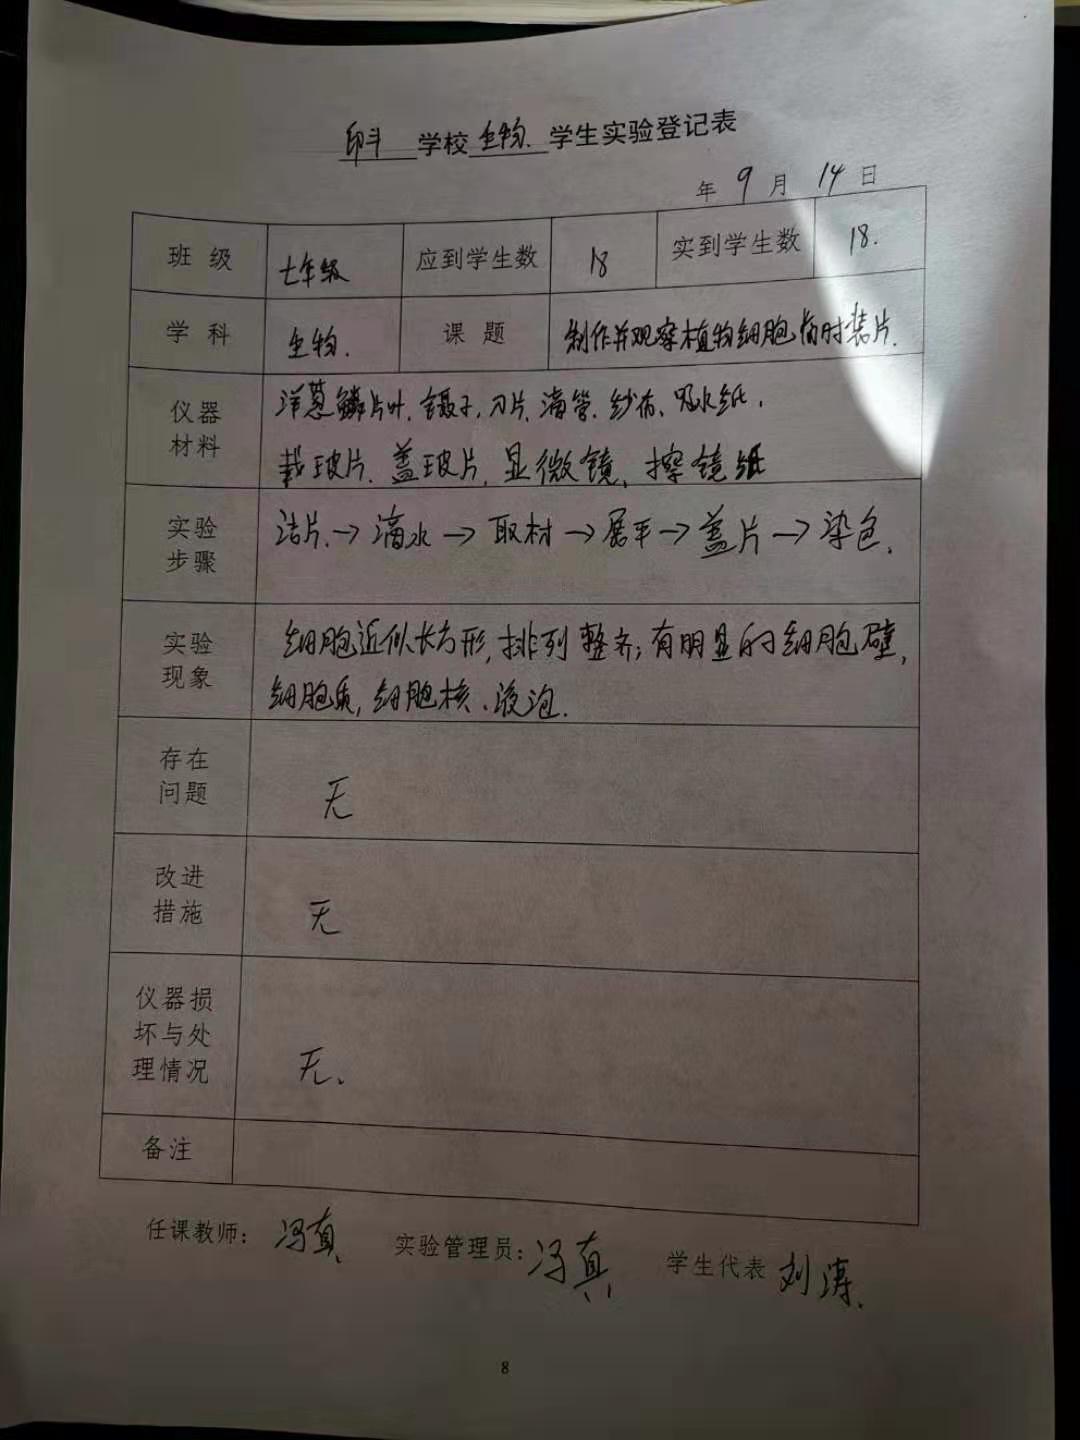 印斗 学校 生物 学生实验登记表
年 9 月 14 日
班 级 七年级 应到学生数 18 实到学生数 18.
学 科 生物. 课 题 制作并观察植物细胞临时装片.
仪器 洋葱鳞片叶. 镊子. 刀片. 滴管. 纱布. 吸水纸.
材料 载玻片. 盖玻片. 显微镜. 擦镜纸
实验 洁片.→滴水→取材→展平→盖片→染色.
步骤
实验 细胞近似长方形, 排列整齐; 有明显的细胞壁,
现象 细胞质, 细胞核、液泡.
存在
问题 无
改进
措施 无
仪器损
坏与处
理情况 无.
备注
任课教师: 冯真 实验管理员: 冯真 学生代表 刘涛.
8